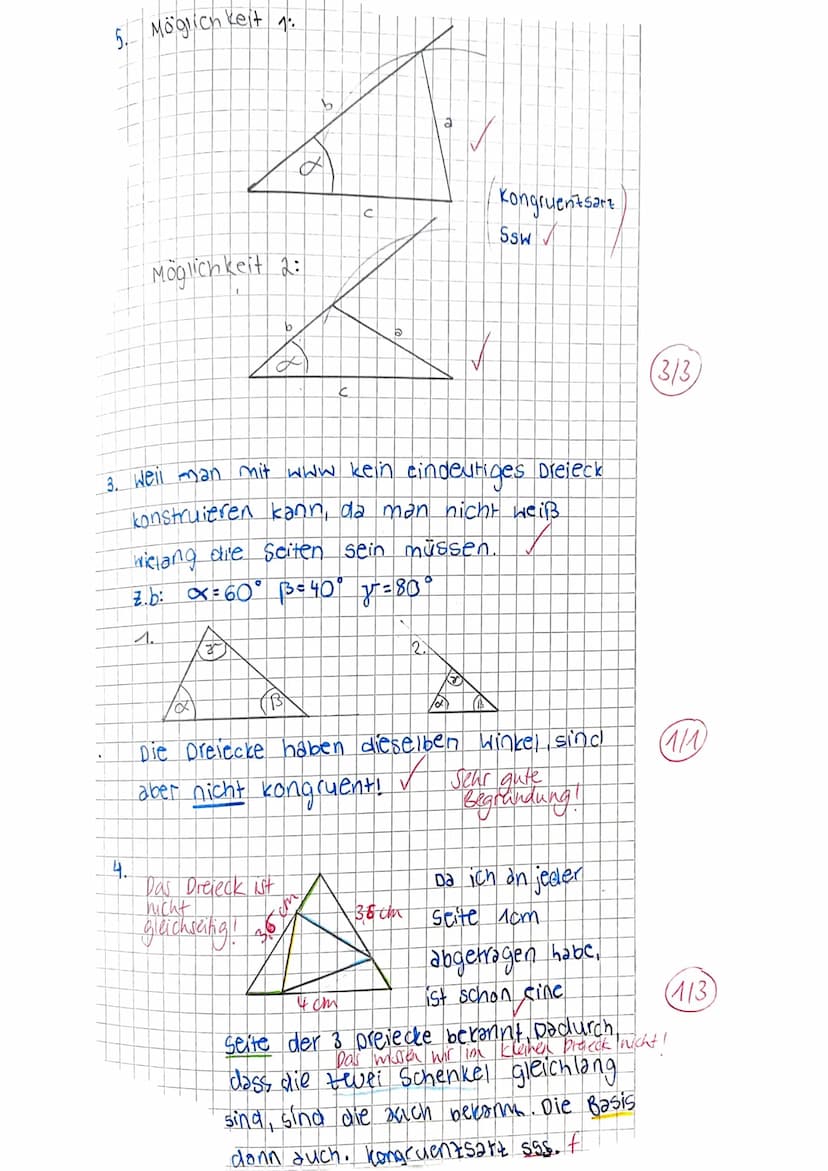 5. Möglichkeit 1:
b
a
α
c
(Kongruentsart
SSW ✓)
Möglichkeit 2:
b
a
α
c
3/3
3. Weil man mit www kein eindeutiges Dreieck
konstruieren kann, da man nicht weiß
wielang die Seiten sein müssen. ✓
z.b: α=60° β=40° γ=80°
1.
γ
α
β
2.
γ
α
β
Die Dreiecke haben dieselben Winkel, sind
1/1
aber nicht kongruent! ✓
Sehr gute
Begründung!
4.
Das Dreieck ist
nicht
gleichseitig!
3,6 cm
3,6 cm
4 cm
Da ich an jeder
Seite 1cm
abgetragen habe,
ist schon eine
1/3
Seite der 3 Dreiecke bekannt, Dadurch,
Das wissen wir im kleinen Dreieck nicht!
dass die zwei Schenkel gleichlang
sind, sind die auch bekannt. Die Basis
dann auch. Kongruentsart sss. f